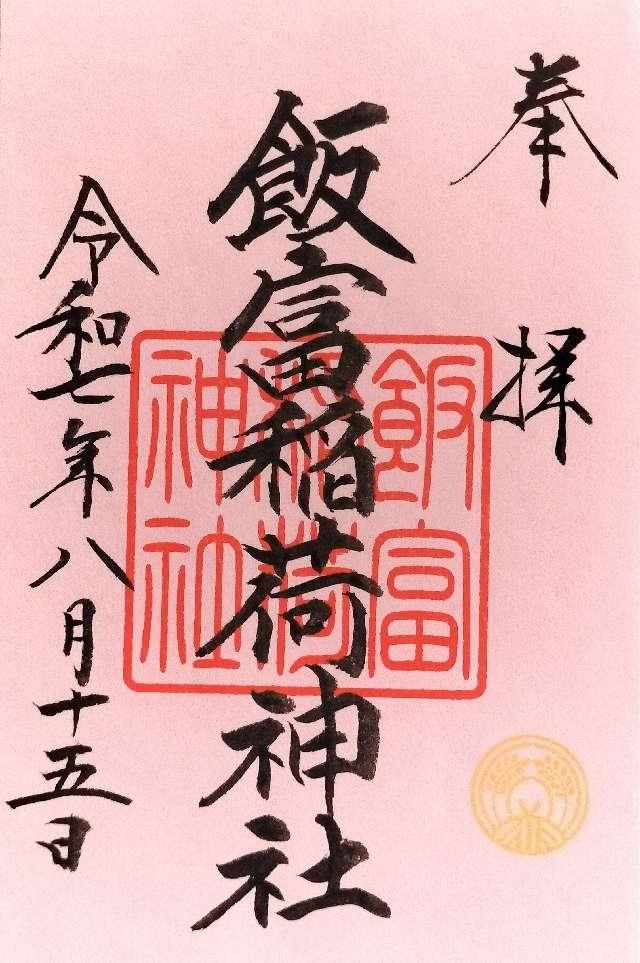 奉拝
飯富稲荷神社
令和七年八月十五日
飯富
稲荷
神社